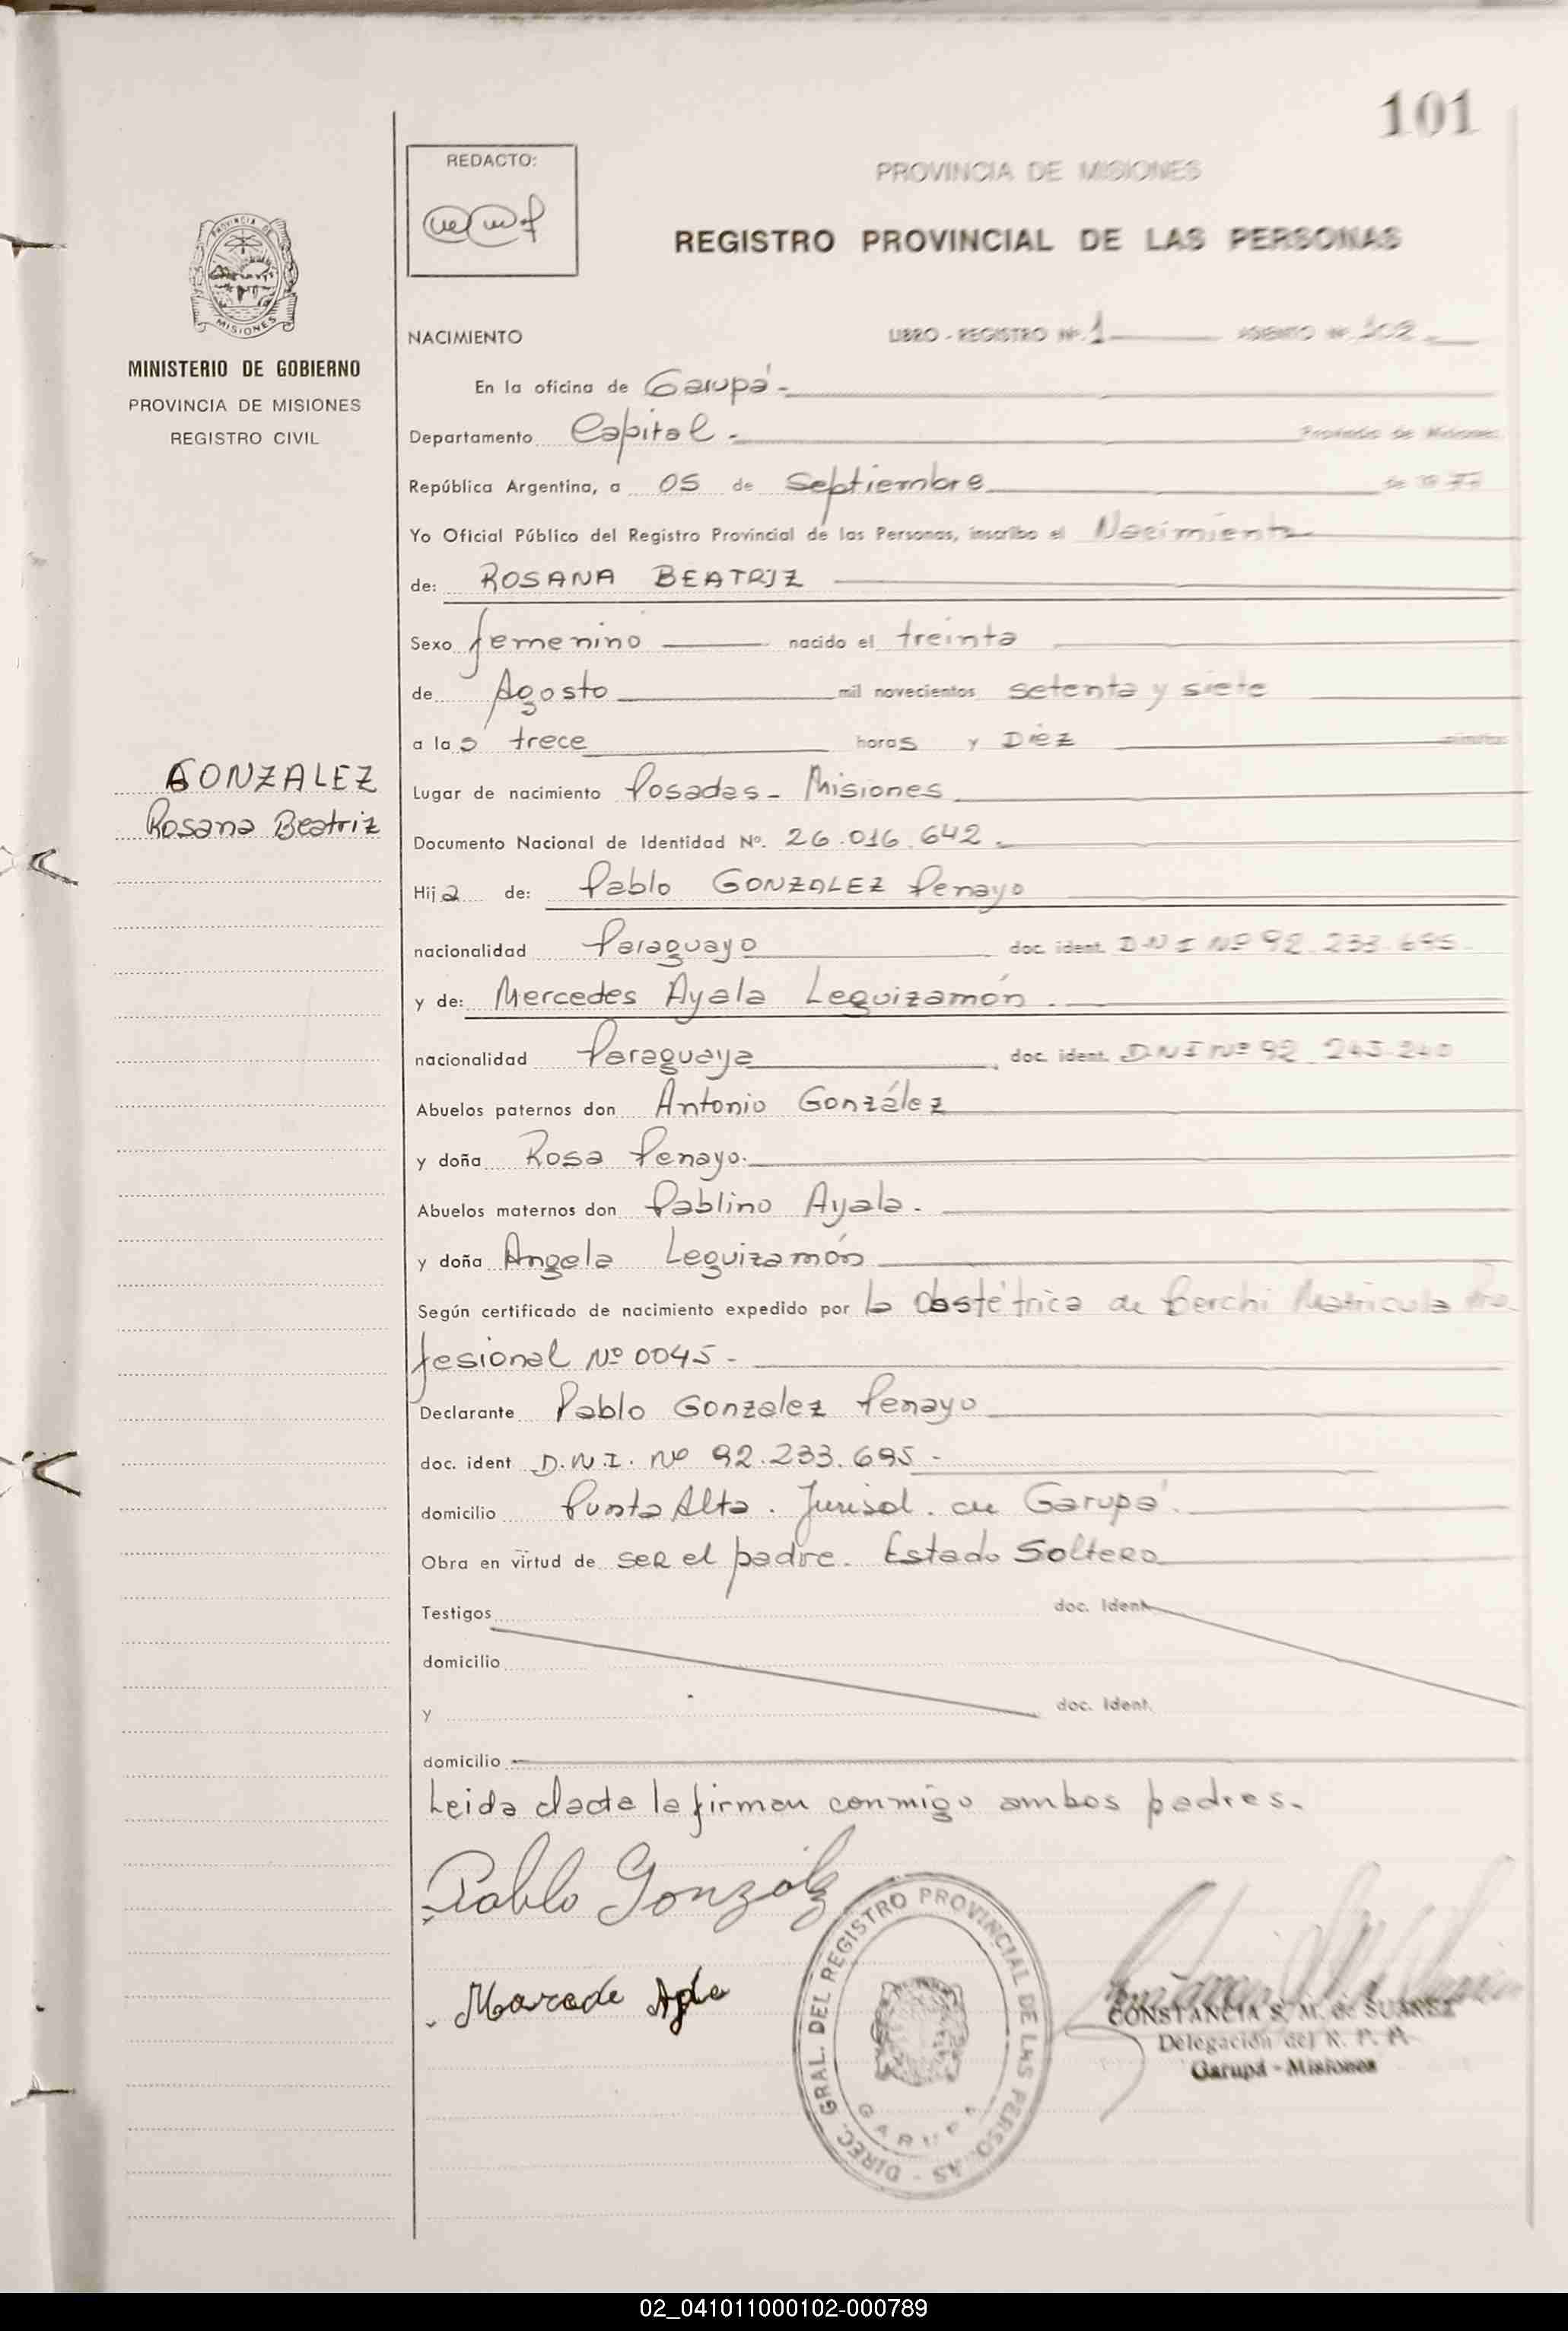 101
REDACTO:
PROVINCIA DE MISIONES
REGISTRO PROVINCIAL DE LAS PERSONAS
PROVINCIA DE
MISIONES
MINISTERIO DE GOBIERNO
PROVINCIA DE MISIONES
REGISTRO CIVIL
NACIMIENTO LIBRO - REGISTRO Nº. 1 ASIENTO Nº. 102.
En la oficina de Garupá.
Departamento Capital. Provincia de Misiones
República Argentina, a 05 de Septiembre de 19 77
Yo Oficial Público del Registro Provincial de las Personas, inscribo el Nacimiento
de: ROSANA BEATRIZ
Sexo femenino nacido el treinta
de Agosto mil novecientos setenta y siete
a las trece horas y Diez minutos
GONZALEZ
Rosana Beatriz
Lugar de nacimiento Posadas - Misiones
Documento Nacional de Identidad Nº. 26.016.642.
Hija de: Pablo GONZALEZ Penayo
nacionalidad Paraguayo doc. ident. D.N.I Nº 92.233.695
y de: Mercedes Ayala Leguizamón.
nacionalidad Paraguaya doc. ident. D.N.I Nº 92.243.240
Abuelos paternos don Antonio González
y doña Rosa Penayo.
Abuelos maternos don Pablino Ayala.
y doña Angela Leguizamón
Según certificado de nacimiento expedido por la Obstétrica de Berchi Matricula Pro-
fesional Nº 0045-
Declarante Pablo Gonzalez Penayo
doc. ident D.N.I. Nº 92.233.695-
domicilio Punta Alta. Jurisd. de Garupá.
Obra en virtud de ser el padre. Estado Soltero
Testigos doc. Ident.
domicilio
y doc. Ident.
domicilio
Leida elacta la firman conmigo ambos padres.
Pablo Gonzalez
DIREC. GRAL. DEL REGISTRO PROVINCIAL DE LAS PERSONAS
GARUPA
CONSTANCIA S. M. de SUAREZ
Delegación del R. P. P.
Garupá - Misiones
02_041011000102-000789